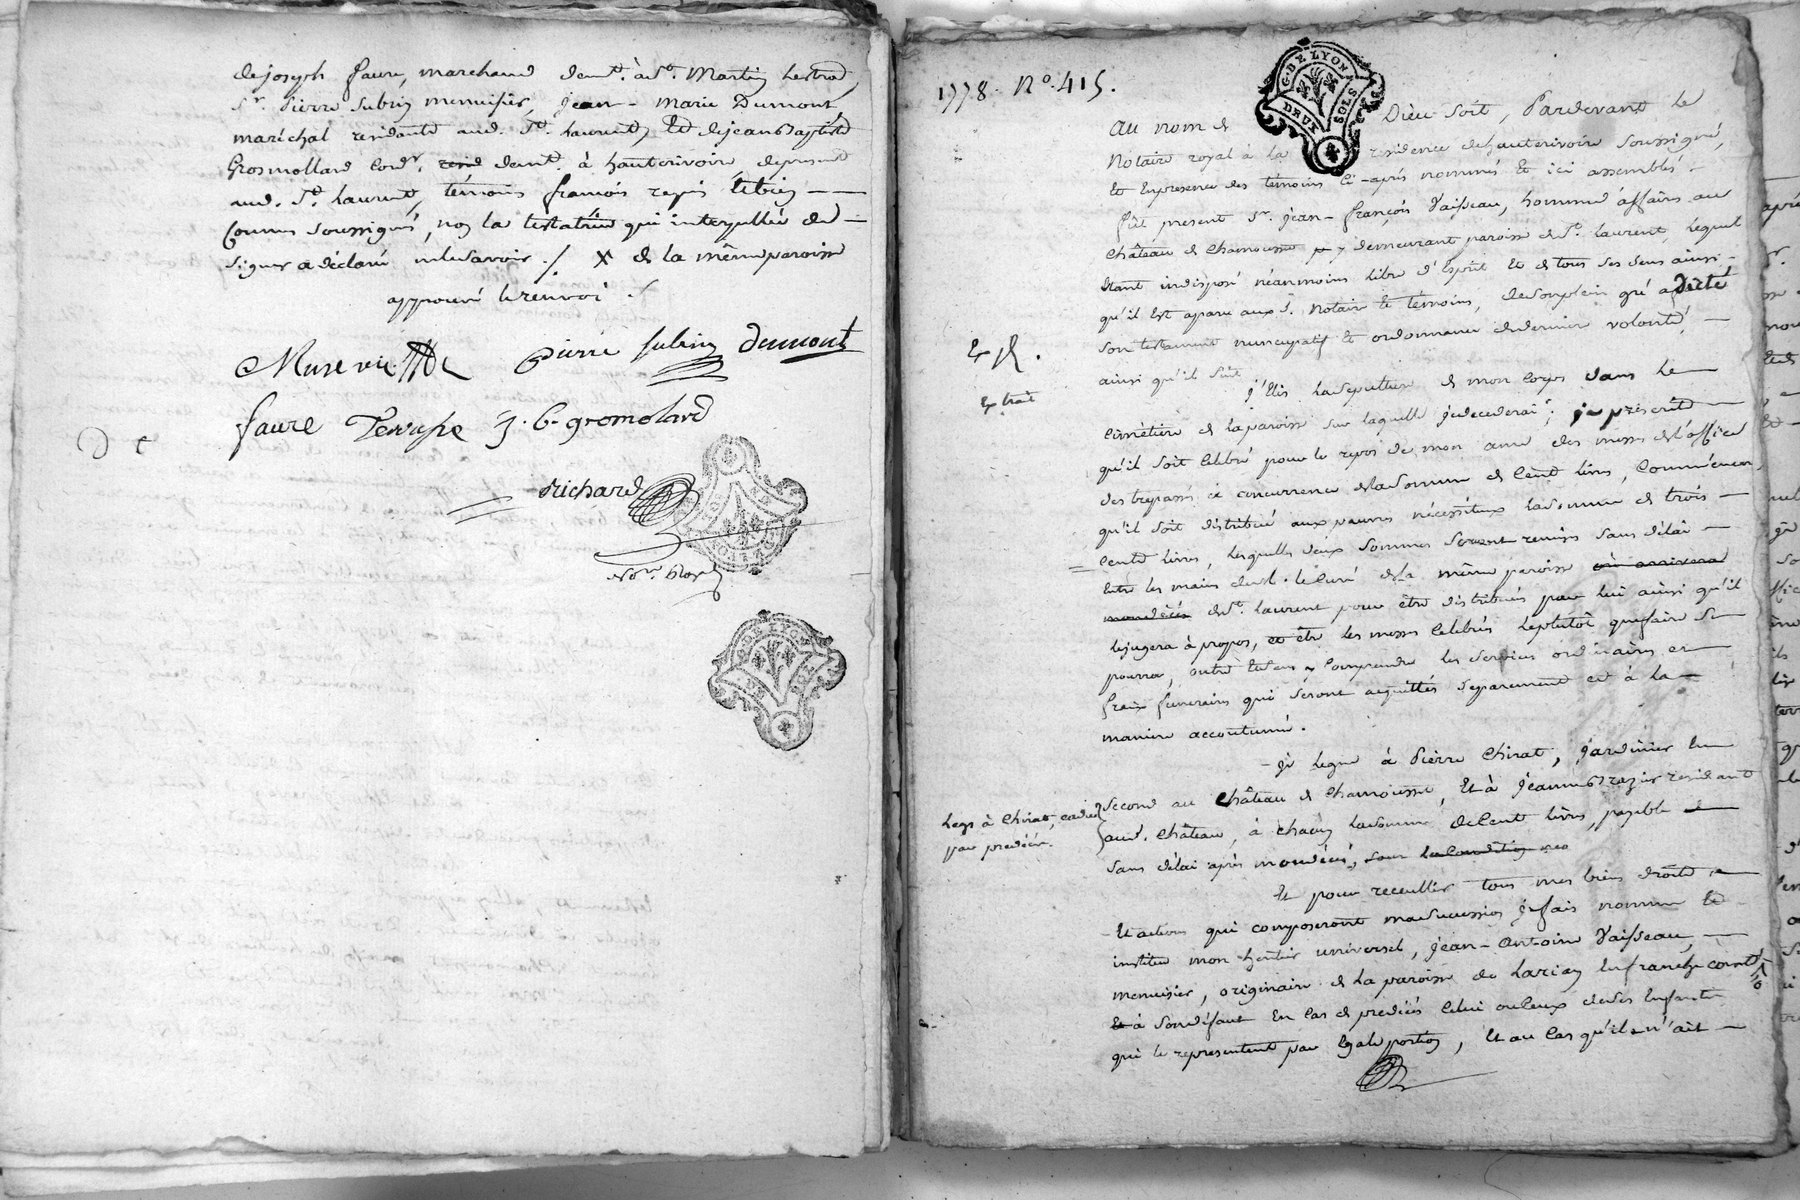 de joseph faure, marchand demt. à st. Martin lestra,
sr. Pierre Subrin menuisier, jean-marie Dumont,
maréchal residants aud. St. laurent, et de jean Baptiste
Grosmollard cordr. demt. à hauterivoire, de present
aud. St. laurent, témoins
Comme soussignés, non la testatrice qui interpellée de
signer a déclaré ne le savoir ./. X de la même paroisse
approuvé le renvoi ./.
pierre subrin Dumont
faure Terrasse J. b. gromolard
Richard
Nore. Royl
1778. No. 415.
G. DE LYON
DEUX SOLS
Au nom de Dieu soit, Pardevant le
Notaire royal à la residence de hauterivoire soussigné,
et en presence des témoins ci-après nommés et ici assemblés
fût present sr. jean-françois Vaisseau, homme d'affaires au
château de chamousset y demeurant paroisse de St. laurent, lequel
étant indisposé néanmoins libre d'esprit et de tous ses sens ainsi
qu'il est aparu aux d. Notaire et témoins, de son plein gré a dicté
son testament nuncupatif et ordonnance de derniere volonté,
ainsi qu'il suit
Extrait
j'élis la sepulture de mon corps dans le
cimetiere de la paroisse sur laquelle je decederai; je prescrits
qu'il soit celebré pour le repos de mon ame des messes de l'office
des trepassés à concurrence de la somme de cent livres,
qu'il soit distribué aux pauvres nécessiteux la somme de trois
cents livres, lesquelles deux sommes seront remises sans délai
entre les mains de sr. le curé de la même paroisse
de St. laurent pour être distribués par lui ainsi qu'il
le jugera à propos, et être les messes celebrés le plutôt que faire se
pourra, outre et sans y comprendre les services ordinaires et
fraix funeraires qui seront acquittés separement et à la
maniere accoutumé.
je legue à Pierre chirat, jardinier en
second au château de chamousset, et à jeanne Brazier residant
aud. château, à chacun la somme de cent livres, payable
sans délai après mon décès, sous la condition
Legs à Chirat,
par predécès.
Et pour receuillir tous mes biens droits
et actions qui composeront ma succession je fais nomme et
institue mon heritier universel, jean-antoine Vaisseau,
menuisier, originaire de la paroisse de Larian en franche comté
et à son défaut en cas de predécès celui ou ceux de ses enfants
qui le representent par egale portion, et au cas qu'il n'ait